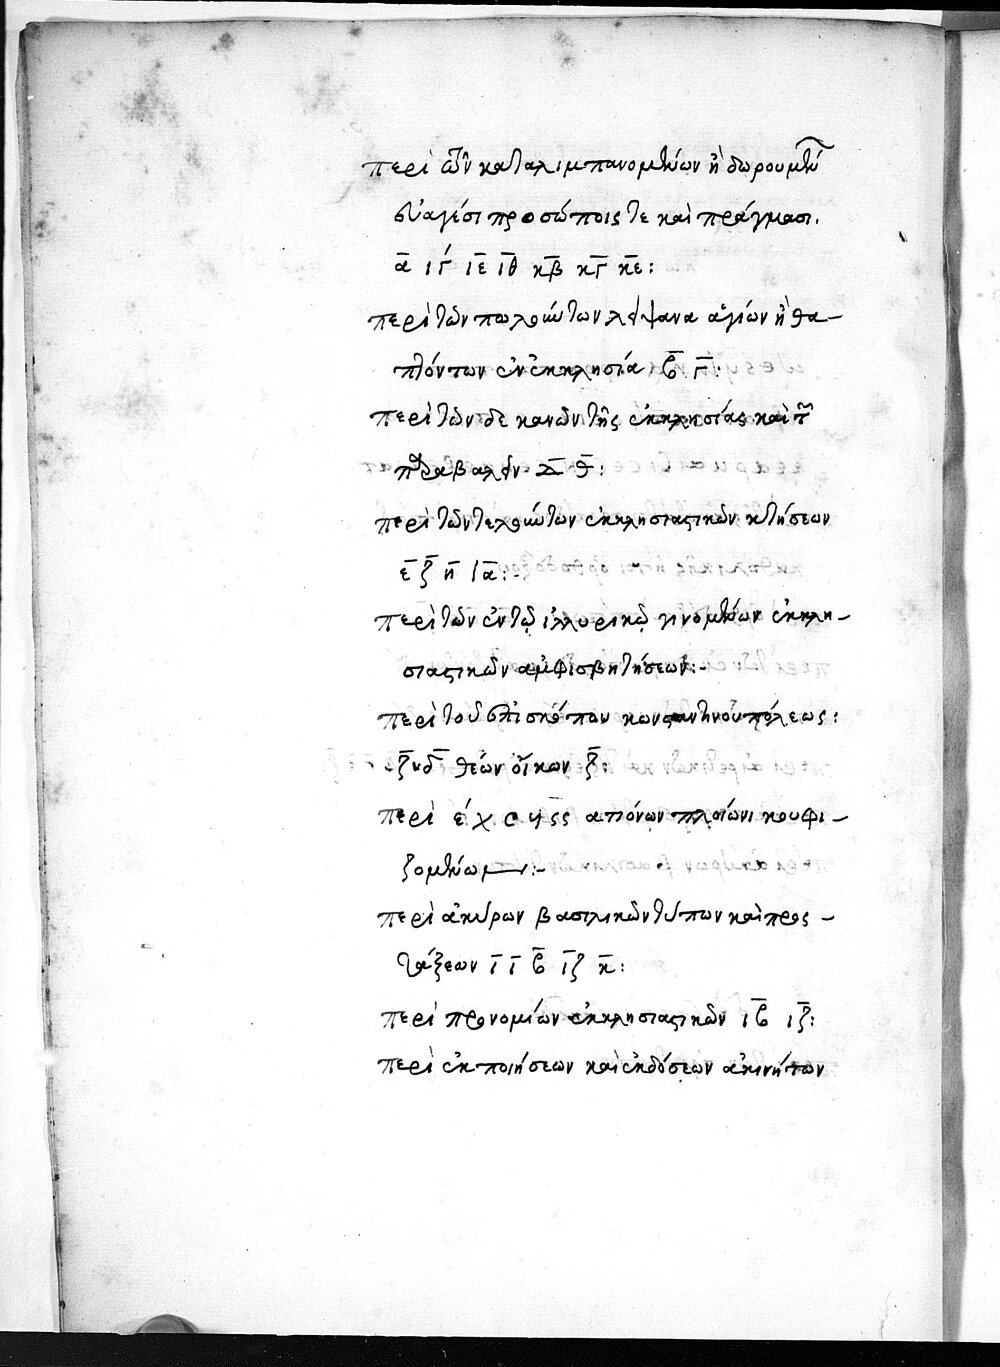 περὶ τῶν καταλιμπανομένων ἢ δωρουμένων
εὐαγέσι προσώποις τε καὶ πράγμασι.
α ιγ ιε ιθ κβ κγ κε:
περὶ τῶν πωλούντων λείψανα ἁγίων ἢ θα-
πτόντων ἐν ἐκκλησία β γ:
περὶ τῶν δε κανῶν τῆς ἐκκλησίας καὶ τ
παραβαλεῖν δ θ:
περὶ τῶν τελούντων ἐκκλησιαστικῶν κτήσεων
ε ζ η ια:-
περὶ τῶν ἐν τῷ ἰλλυρικῷ γινομένων ἐκκλη-
σιαστικῶν ἀμφισβητήσεων:-
περὶ τοῦ ἐπισκόπου κωνσταντινουπόλεως:
ϛ νδ θείων οἴκων ζ:
περὶ ἀπόνων πλοίων κουφι-
ζομένων:-
περὶ ἀκύρων βασιλικῶν τύπων καὶ προς-
τάξεων ι ι β ιζ κ:
περὶ προνομίων ἐκκλησιαστικῶν ιβ ιϛ:
περὶ ἐκποιήσεων καὶ ἐκδόσεων ἀκινήτων